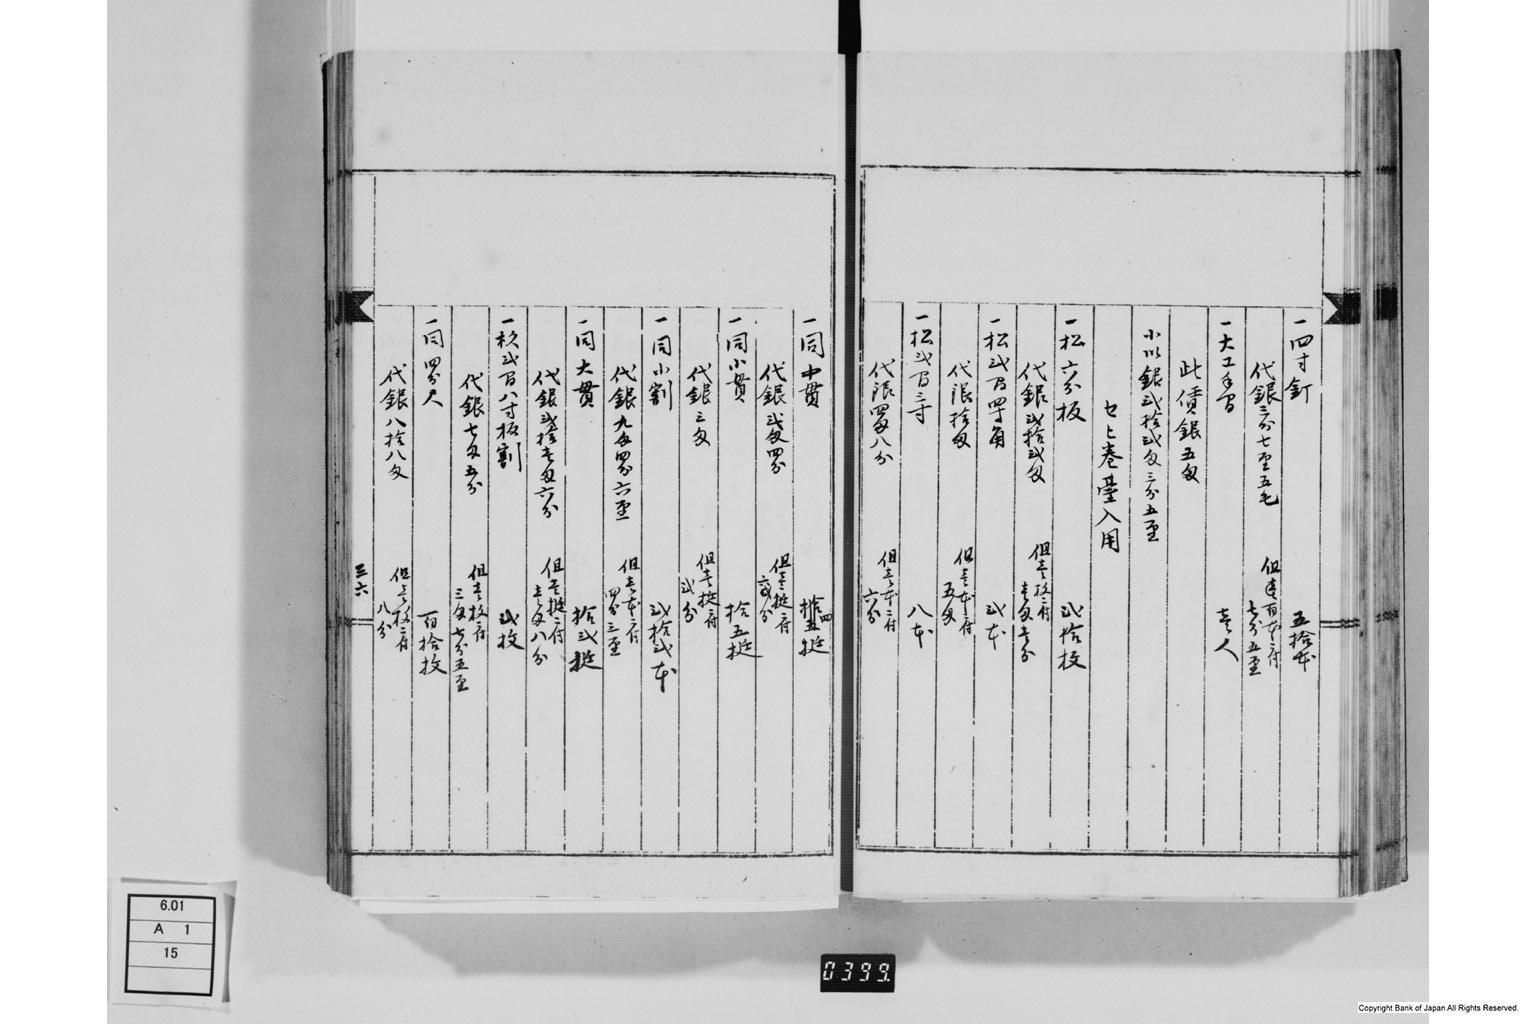 一四寸釘 五拾本
代銀三分七厘五毛 但百本ニ付 七分五厘
一大工手間 壱人
此賃銀五匁
小以銀弐拾弐匁三分五厘
七ヒ巻臺入用
一松六分板 弐拾枚
代銀弐拾弐匁 但壱枚ニ付 壱匁壱分
一松弐間四寸角 弐本
代銀拾匁 但壱本ニ付 五匁
一松弐間三寸 八本
代銀四匁八分 但壱本ニ付 六分
一同中貫 拾四挺
代銀弐匁四分 但壱挺ニ付
一同小貫 拾五挺
代銀三匁 但壱挺ニ付 弐分
一同小割 弐拾弐本
代銀九匁四分六厘 但壱本ニ付 四分三厘
一同大貫 拾弐挺
代銀弐拾壱匁六分 但壱挺ニ付 壱匁八分
一杉弐間八寸板割 弐枚
代銀七匁五分 但壱枚ニ付 三匁七分五厘
一同四分 百拾枚
代銀八拾八匁 但壱枚ニ付 八分
三六
6.01
A 1
15
0399
Copyright Bank of Japan All Rights Reserved.